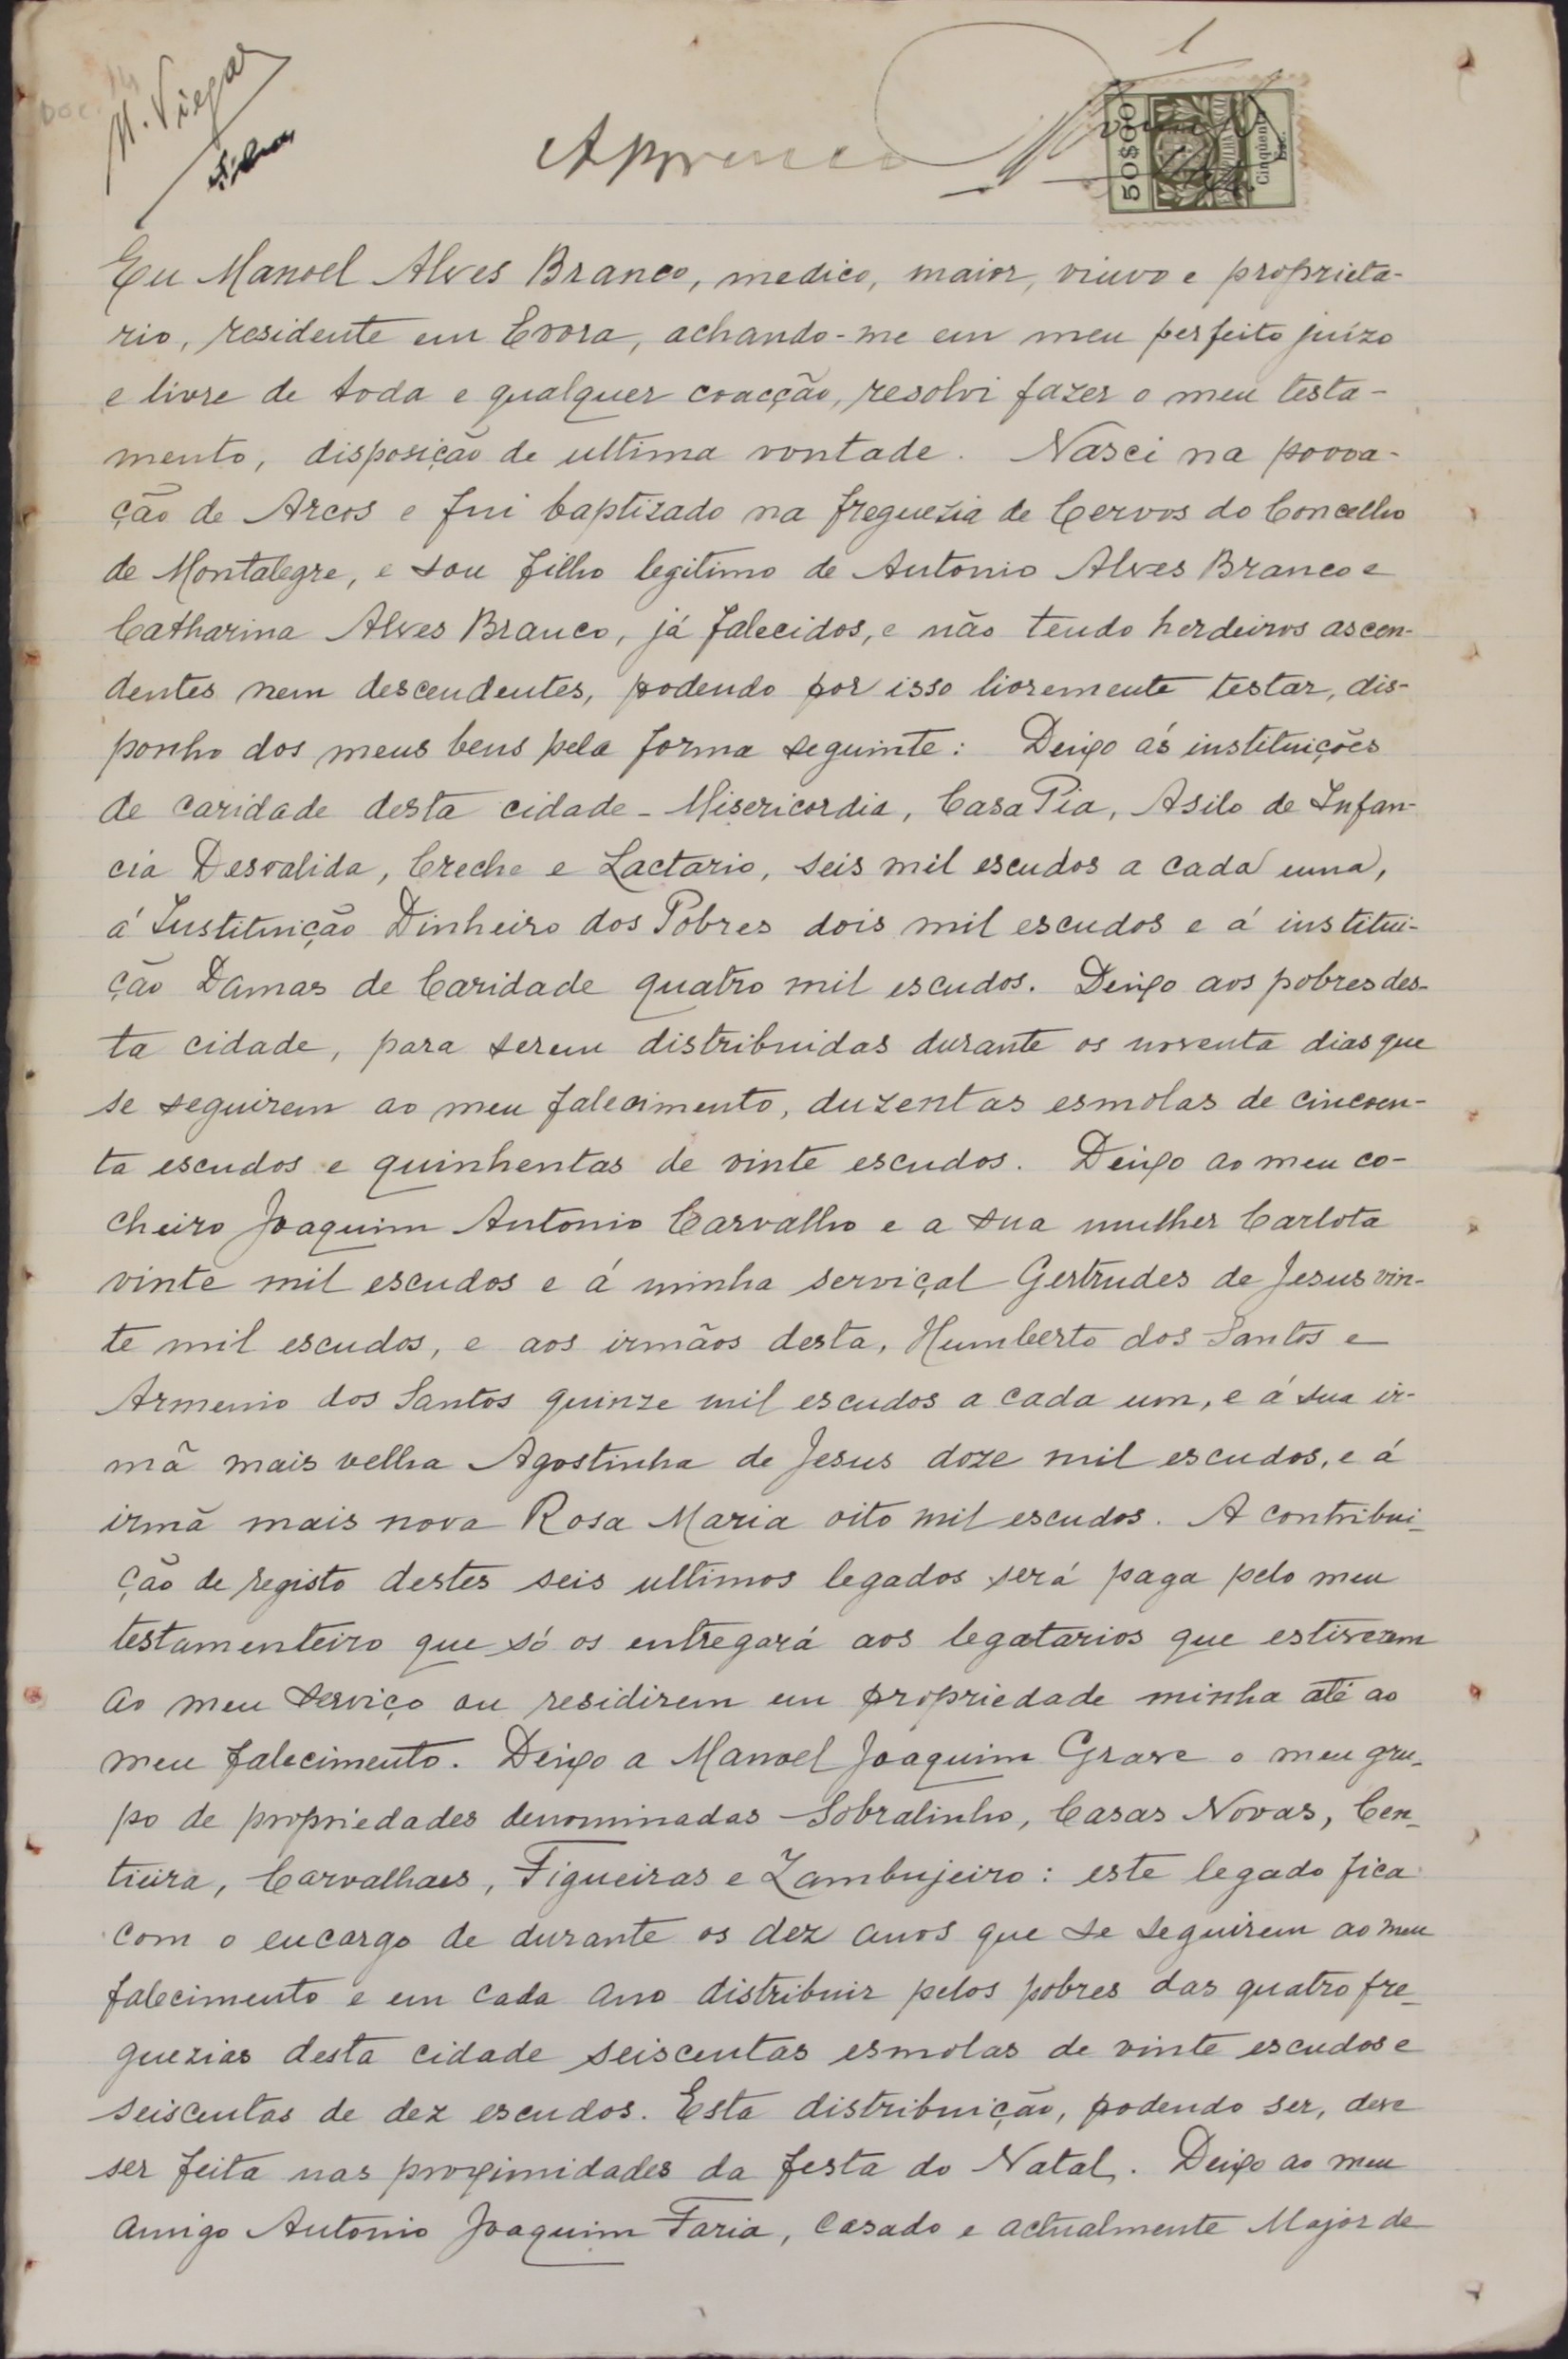 1
Doc. 14
M. Viegas
50$00
Cinquenta
Esc.
Eu Manoel Alves Branco, medico, maior, viuvo e proprieta-
rio, residente em Evora, achando-me em meu perfeito juízo
e livre de toda e qualquer coacção, resolvi fazer o meu testa-
mento, disposição de ultima vontade. Nasci na povoa-
ção de Arcos e fui baptizado na freguezia de Cervos do Concelho
de Montalegre, e sou filho legitimo de Antonio Alves Branco e
Catharina Alves Branco, já falecidos, e não tendo herdeiros ascen-
dentes nem descendentes, podendo por isso livremente testar, dis-
ponho dos meus bens pela forma seguinte: Deixo ás instituições
de caridade desta cidade - Misericordia, Casa Pia, Asilo de Infan-
cia Desvalida, Creche e Lactario, seis mil escudos a cada uma,
á Instituição Dinheiro dos Pobres dois mil escudos e á institui-
ção Damas de Caridade quatro mil escudos. Deixo aos pobres des-
ta cidade, para serem distribuidas durante os noventa dias que
se seguirem ao meu falecimento, duzentas esmolas de cincoen-
ta escudos e quinhentas de vinte escudos. Deixo ao meu co-
cheiro Joaquim Antonio Carvalho e a sua mulher Carlota
vinte mil escudos e á minha serviçal Gertrudes de Jesus vin-
te mil escudos, e aos irmãos desta, Humberto dos Santos e
Armenio dos Santos quinze mil escudos a cada um, e á sua ir-
mã mais velha Agostinha de Jesus doze mil escudos, e á
irmã mais nova Rosa Maria oito mil escudos. A contribui-
ção de registo destes seis ultimos legados será paga pelo meu
testamenteiro que só os entregará aos legatarios que estiverem
ao meu serviço ou residirem em propriedade minha até ao
meu falecimento. Deixo a Manoel Joaquim Grave o meu gru-
po de propriedades denominadas Sobralinho, Casas Novas, Cen-
tieira, Carvalhaes, Figueiras e Zambujeiro: este legado fica
com o encargo de durante os dez anos que se seguirem ao meu
falecimento e em cada ano distribuir pelos pobres das quatro fre-
guezias desta cidade seiscentas esmolas de vinte escudos e
seiscentas de dez escudos. Esta distribuição, podendo ser, deve
ser feita nas proximidades da festa do Natal. Deixo ao meu
amigo Antonio Joaquim Faria, casado e actualmente Major de